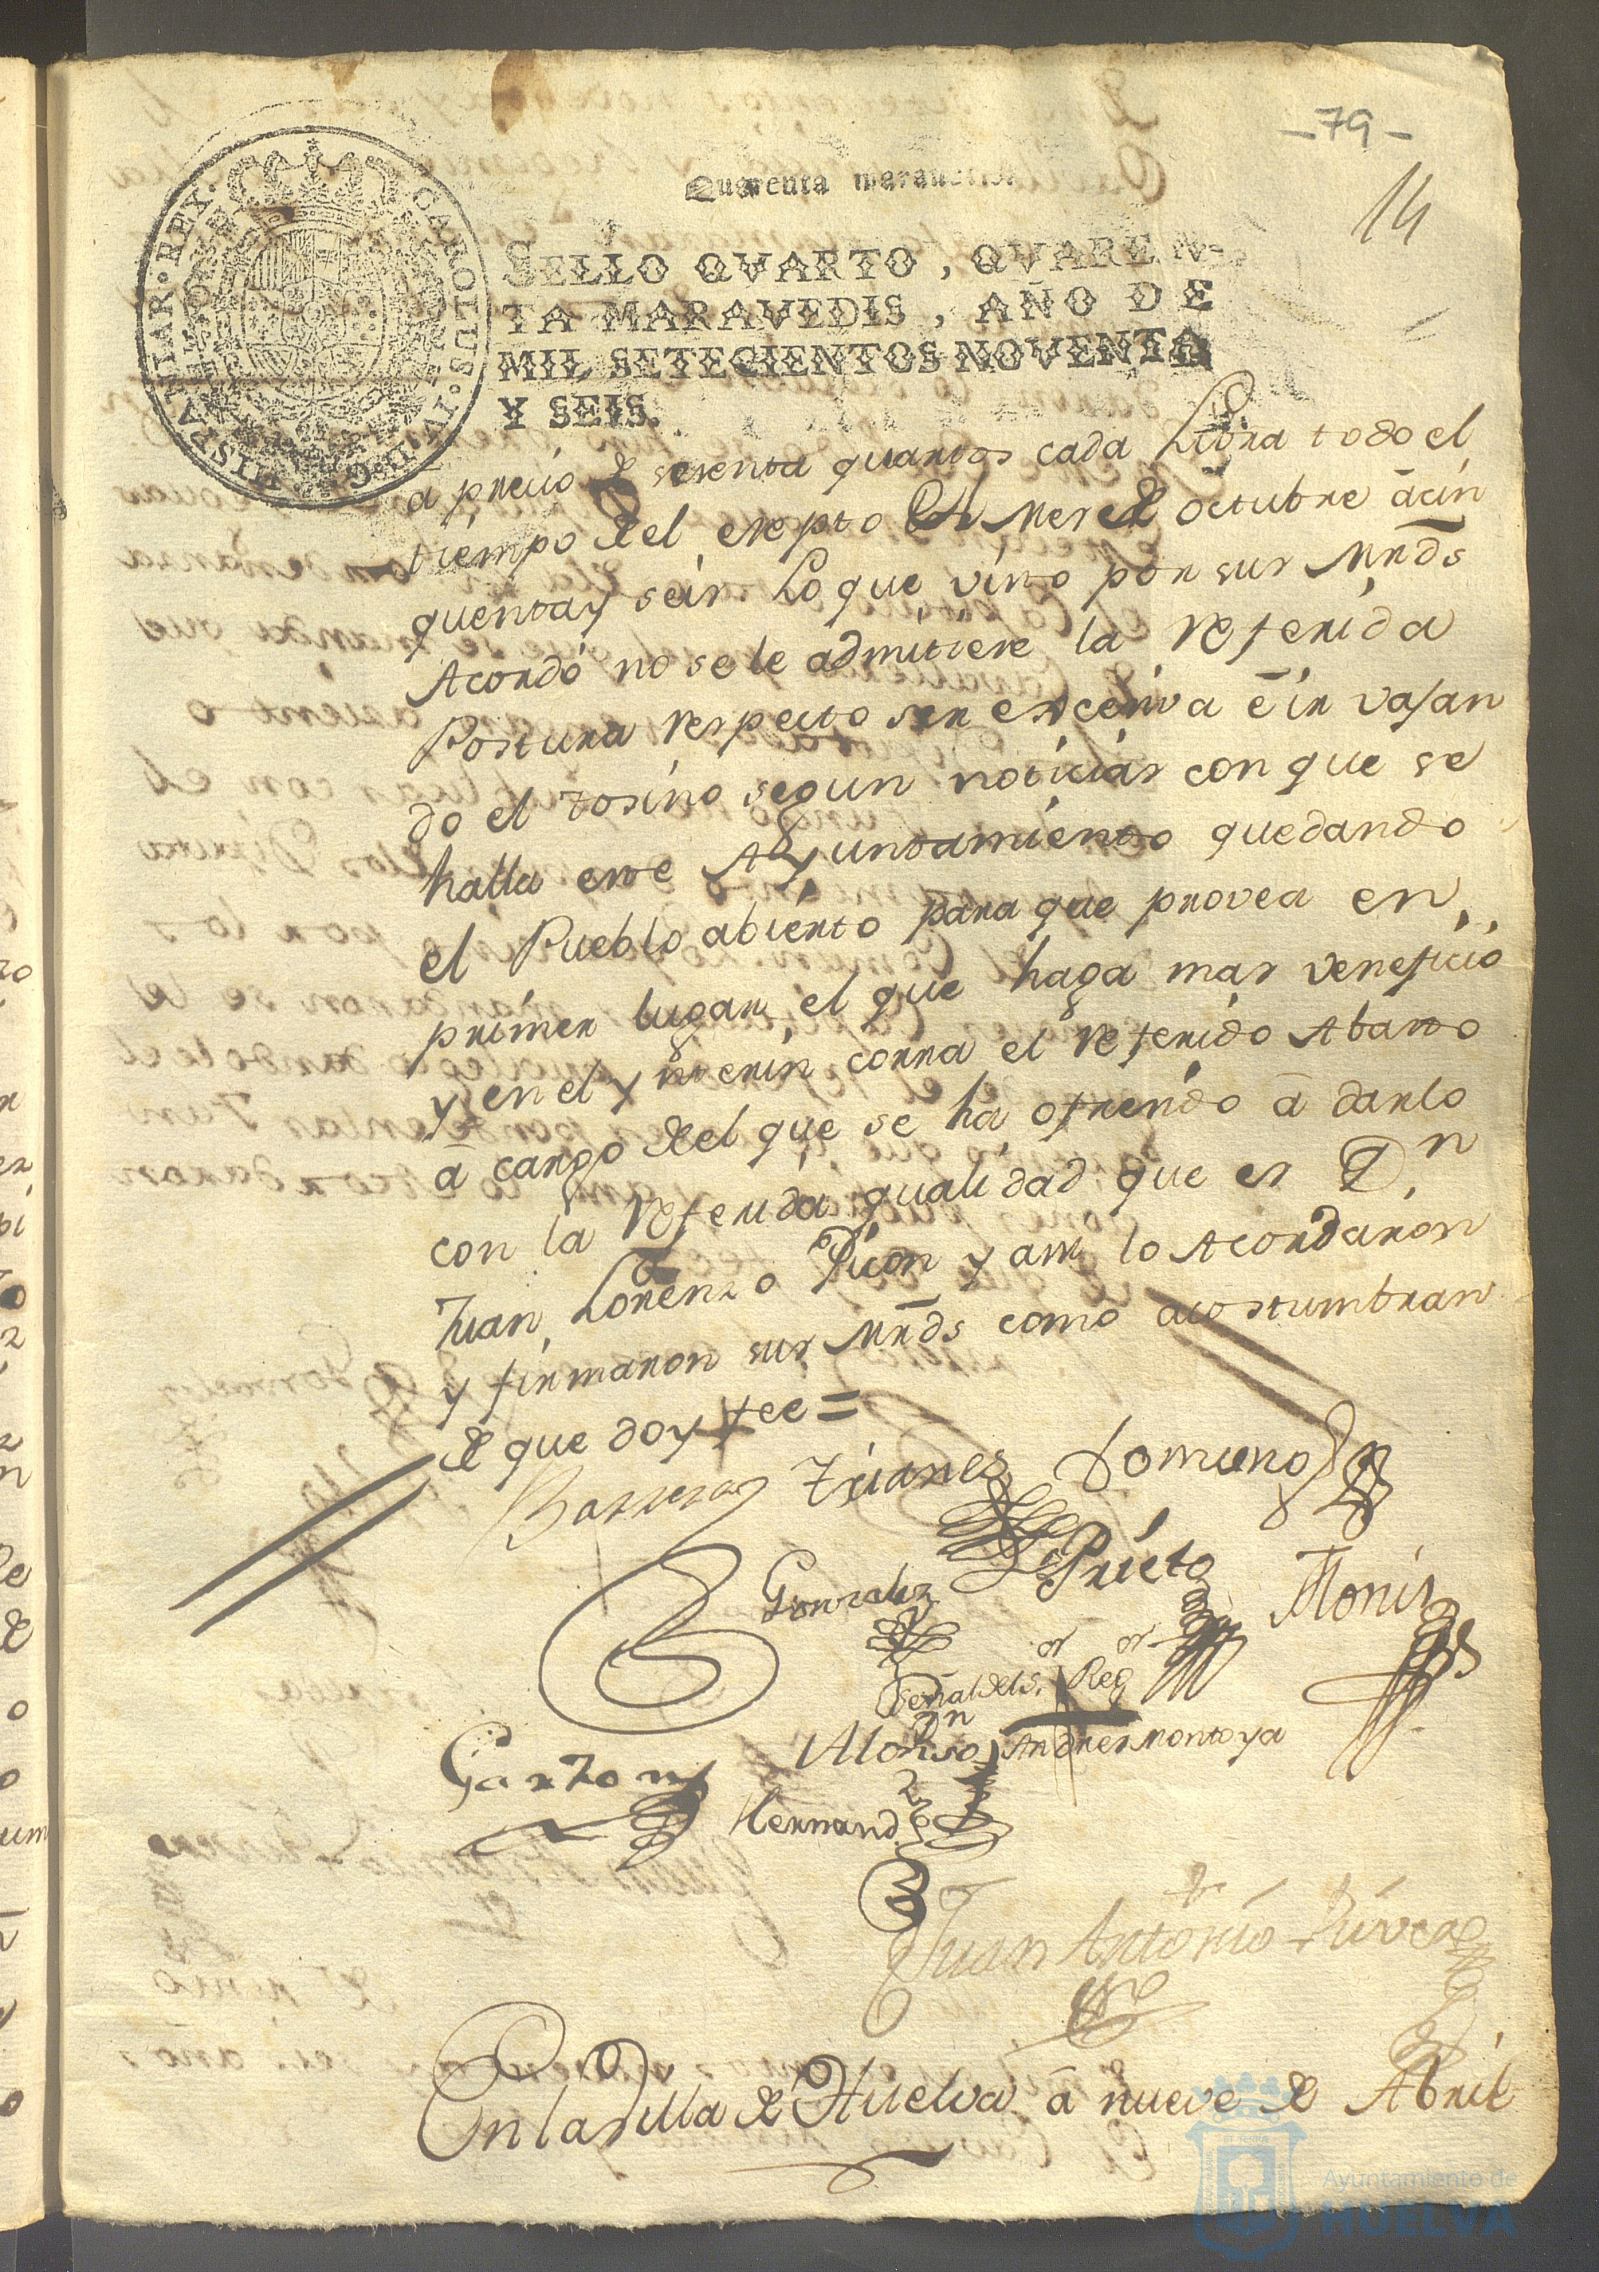 - 79 -
14
Quarenta maravedis.
SELLO QVARTO, QVAREN-
TA MARAVEDIS, AÑO DE
MIL SETECIENTOS NOVENTA
Y SEIS.
CAROLUS IV D G HISPANIAR REX
a precio de sesenta quartos cada Libra todo el
tiempo del, exepto el Mes de octubre ā cin
quenta y seis Lo que visto por sus Mrds
Acordó no se le admitiese la referida
Postura respecto ser excesiva ē ir vajan
do el tosino segun noticias con que se
halla este Ayuntamiento quedando
el Pueblo abierto para que provea en
primer lugar, el que haga mas veneficio
y en el ynterin corra el referido Abasto
ā cargo del que se ha ofrecido ā darlo
con la referida qualidad que es Dn
Juan Lorenzo Picon y asi lo Acordaron
y firmaron sus Mrds como acostumbran
de que doy fee =
Barrera Trianes Romero
Gonzalez Prieto Monis
Señal del Sor Regor
Garzon Alonso Andres Montoya
Hernandz
Juan Antonio Rivera
En la Villa de Huelva ā nueve de Abril
Ayuntamiento de
HUELVA